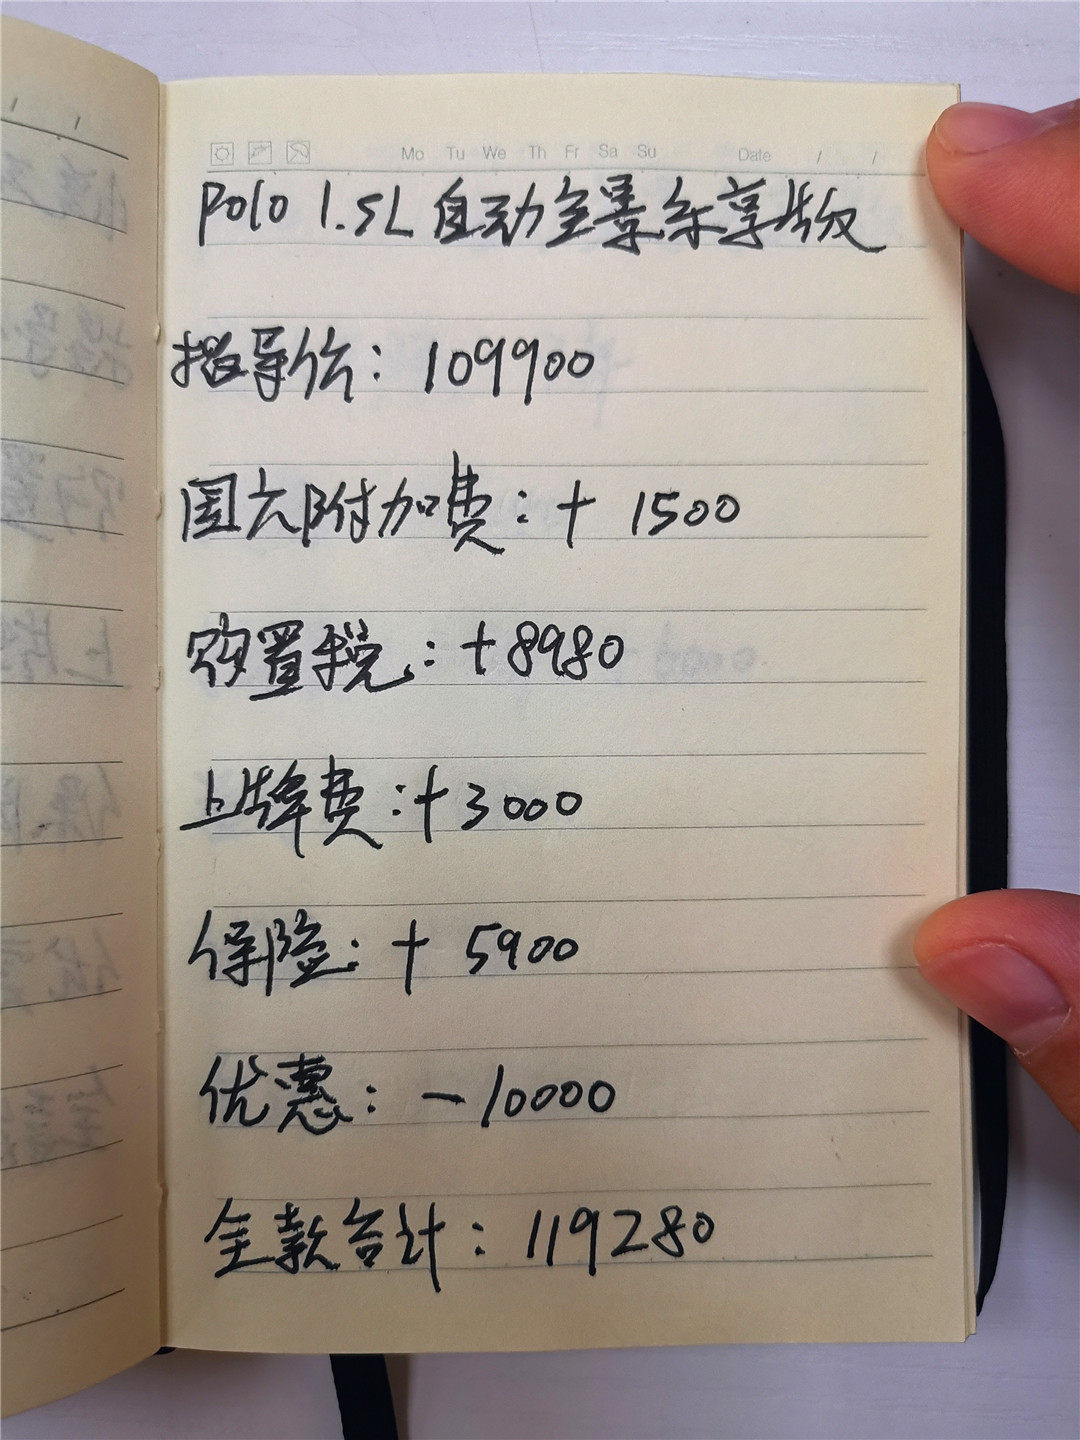 Mo Tu We Th Fr Sa Su Date / /
Polo 1.5L 自动全景乐享版
指导价: 109900
国六附加费: + 1500
购置税: +8980
上牌费: +3000
保险: + 5900
优惠: - 10000
全款合计: 119280